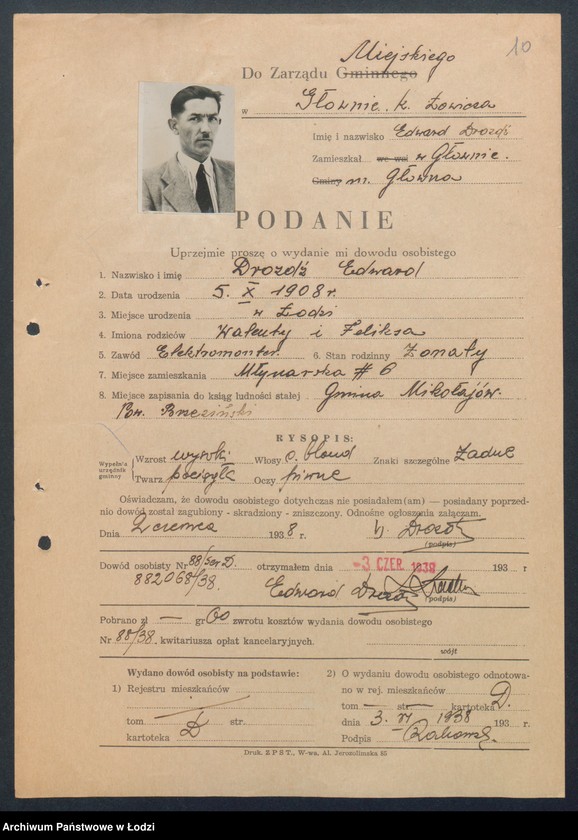 10
Miejskiego
Do Zarządu Gminnego
w Głownie k. Łowicza
Imię i nazwisko Edward Drozdź
Zamieszkał we wsi w Głownie.
Gminy m. Głowna
PODANIE
Uprzejmie proszę o wydanie mi dowodu osobistego
1. Nazwisko i imię Drozdź Edward
2. Data urodzenia 5. X 1908 r.
3. Miejsce urodzenia w Łodzi
4. Imiona rodziców Walenty i Feliksa
5. Zawód Elektromonter. 6. Stan rodzinny Żonaty
7. Miejsce zamieszkania Młynarska # 6
8. Miejsce zapisania do ksiąg ludności stałej Gmina Mikołajów.
Pow. Brzeziński
RYSOPIS:
Wypełnia urządnik gminny
Wzrost wysoki Włosy c. blond Znaki szczególne Żadne
Twarz pociągła Oczy piwne
Oświadczam, że dowodu osobistego dotychczas nie posiadałem(am) — posiadany poprzed-
nio dowód został zagubiony - skradziony - zniszczony. Odnośne ogłoszenia załączam.
Dnia 2 czerwca 1938 r. Drozdź
(podpis)
Dowód osobisty Nr 88/ser D. otrzymałem dnia -3 CZER. 1938 193 r
882068/38. Edward Drozdź
(podpis)
Pobrano zł — gr 60 zwrotu kosztów wydania dowodu osobistego
Nr 88/38. kwitariusza opłat kancelaryjnych.
wójt
Wydano dowód osobisty na podstawie:
1) Rejestru mieszkańców
tom str.
kartoteka D
2) O wydaniu dowodu osobistego odnotowa-
no w rej. mieszkańców
tom — str — kartoteka D.
dnia 3. VI 1938 193 r
Podpis
Druk. ZPST., W-wa, Al. Jerozolimska 85
Archiwum Państwowe w Łodzi